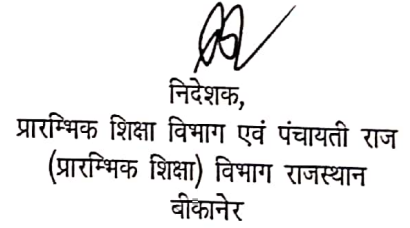 निदेशक,
प्रारम्भिक शिक्षा विभाग एवं पंचायती राज
(प्रारम्भिक शिक्षा) विभाग राजस्थान
बीकानेर